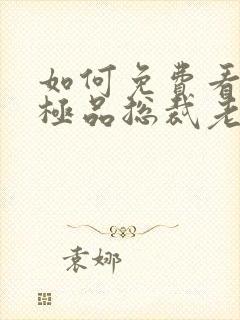 如何免費看
極品总裁老
袁娜